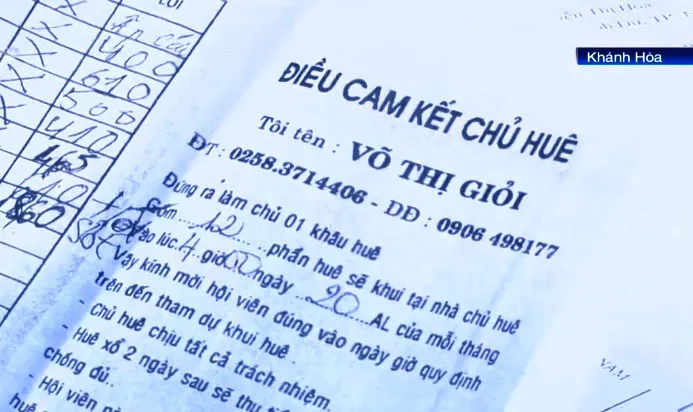 Khánh Hòa
ĐIỀU CAM KẾT CHỦ HUÊ
Tôi tên : VÕ THỊ GIỎI
ĐT : 0258.3714406 - DĐ : 0906 498177
Đứng ra làm chủ 01 khâu huê
Gồm....12....phần huê sẽ khui tại nhà chủ huê
Vào lúc.4 giờ 00 ngày ..20...AL của mỗi tháng
Vậy kính mời hội viên đúng vào ngày giờ quy định
trên đến tham dự khui huê .
- Chủ huê chịu tất cả trách nhiệm.
- Huê xổ 2 ngày sau sẽ thu
chống đủ..
- Hội viên
X
X 400
X 610
X 500
X 410
465
10
1860